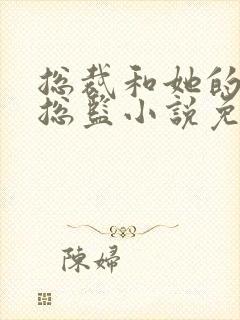 总裁和她的
总监小说免
陈妇